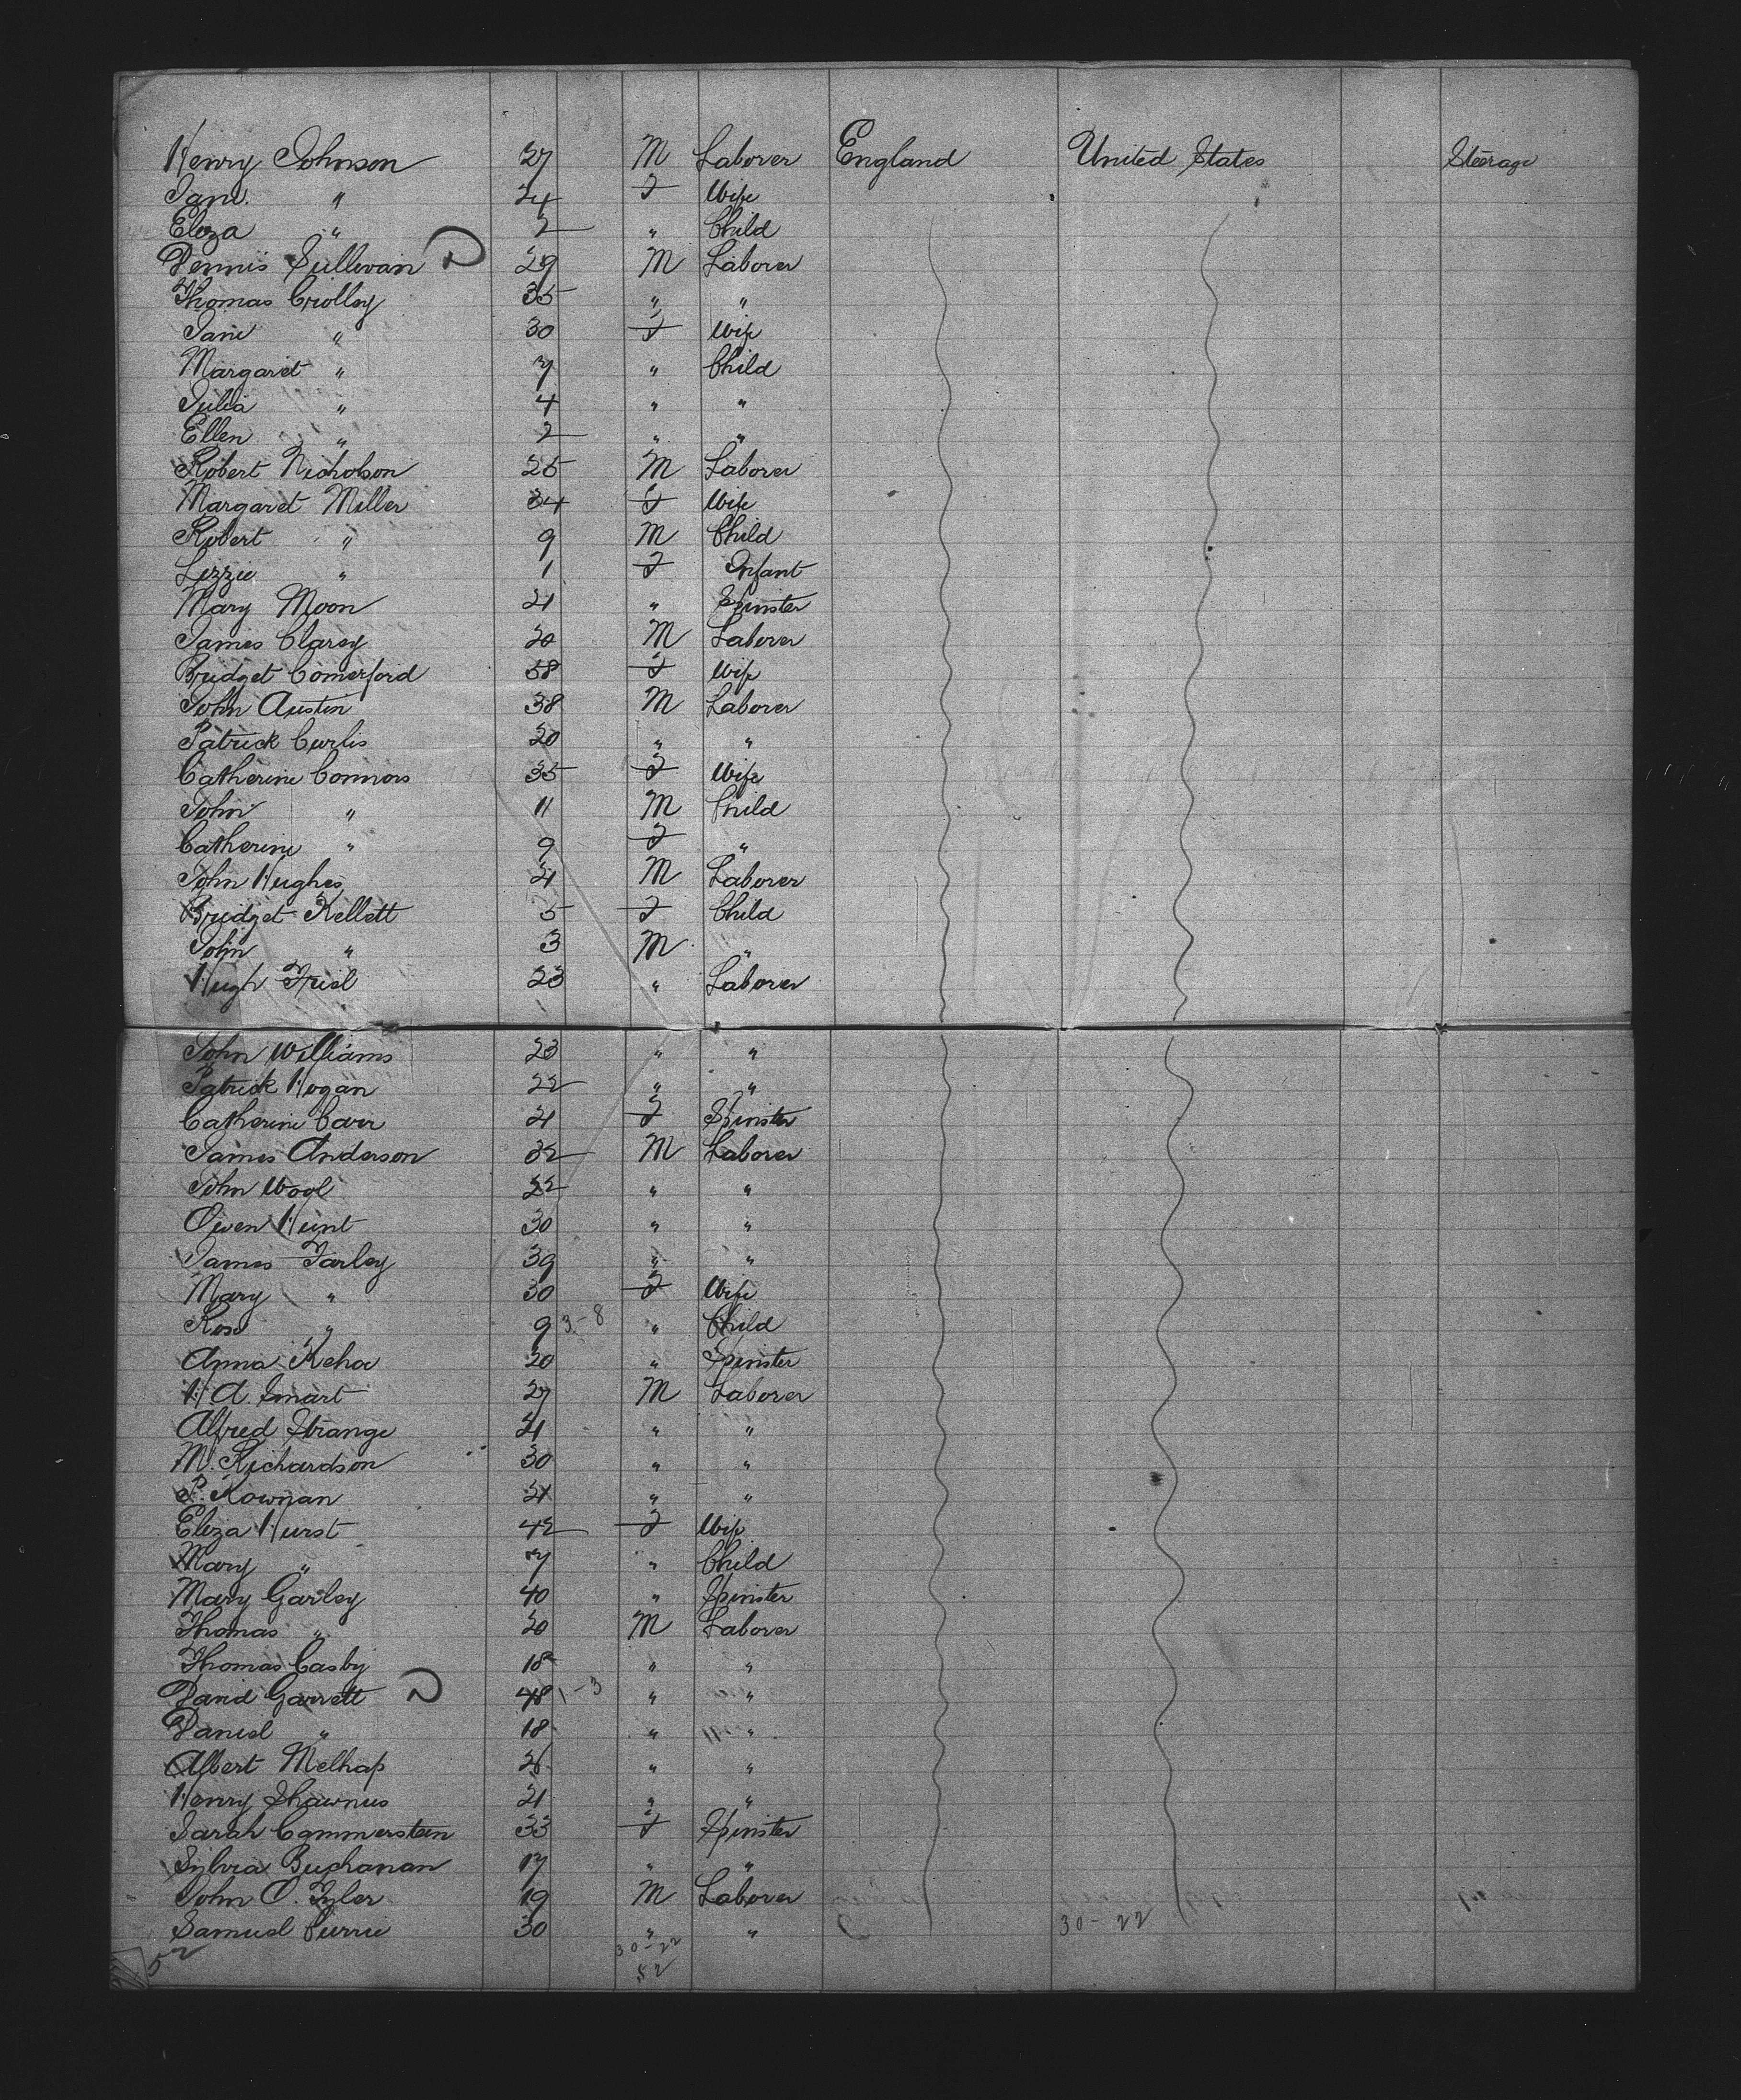 Henry Johnson 27 M Laborer England United States Steerage
Jane " 24 F Wife
Eliza " 2 " Child
Dennis Sullivan D 29 M Laborer
Thomas Crolley 35 " "
Jane " 30 F Wife
Margaret " 7 " Child
Julia " 4 " "
Ellen " 2 " "
Robert Nicholson 25 M Laborer
Margaret Miller 34 F Wife
Robert " 9 M Child
Lizzie " 1 F Infant
Mary Moon 21 " Spinster
James Clarey 20 M Laborer
Bridget Comerford 58 F Wife
John Austin 38 M Laborer
Patrick Curlis 20 " "
Catherine Connors 35 F Wife
John " 11 M Child
Catherine " 9 F "
John Hughes 21 M Laborer
Bridget Kellett 5 F Child
John " 3 M "
Hugh Friel 23 " Laborer
John Williams 23 " "
Patrick Hogan 22 " "
Catherine Carr 21 F Spinster
James Anderson 32 M Laborer
John Wool 22 " "
Owen Hunt 30 " "
James Farley 39 " "
Mary " 30 F Wife
Rose " 9 3-8 " Child
Anna Kehoe 20 " Spinster
H. A. Smart 27 M Laborer
Alfred Strange 21 " "
M. Richardson 30 " "
P. Kownan 21 " "
Eliza Hurst 42 F Wife
Mary " 7 " Child
Mary Garley 40 " Spinster
Thomas " 20 M Laborer
Thomas Casby 18 " "
David Garrett D 48 1-3 " "
Daniel " 18 " "
Albert 26 " "
Henry Shawnus 21 " "
Sarah Cammerstein 33 F Spinster
Sylvia Buchanan 17 " "
John O. Tyler 19 M Laborer
Samuel Currie 30 " " 30-22
52 30-22
52